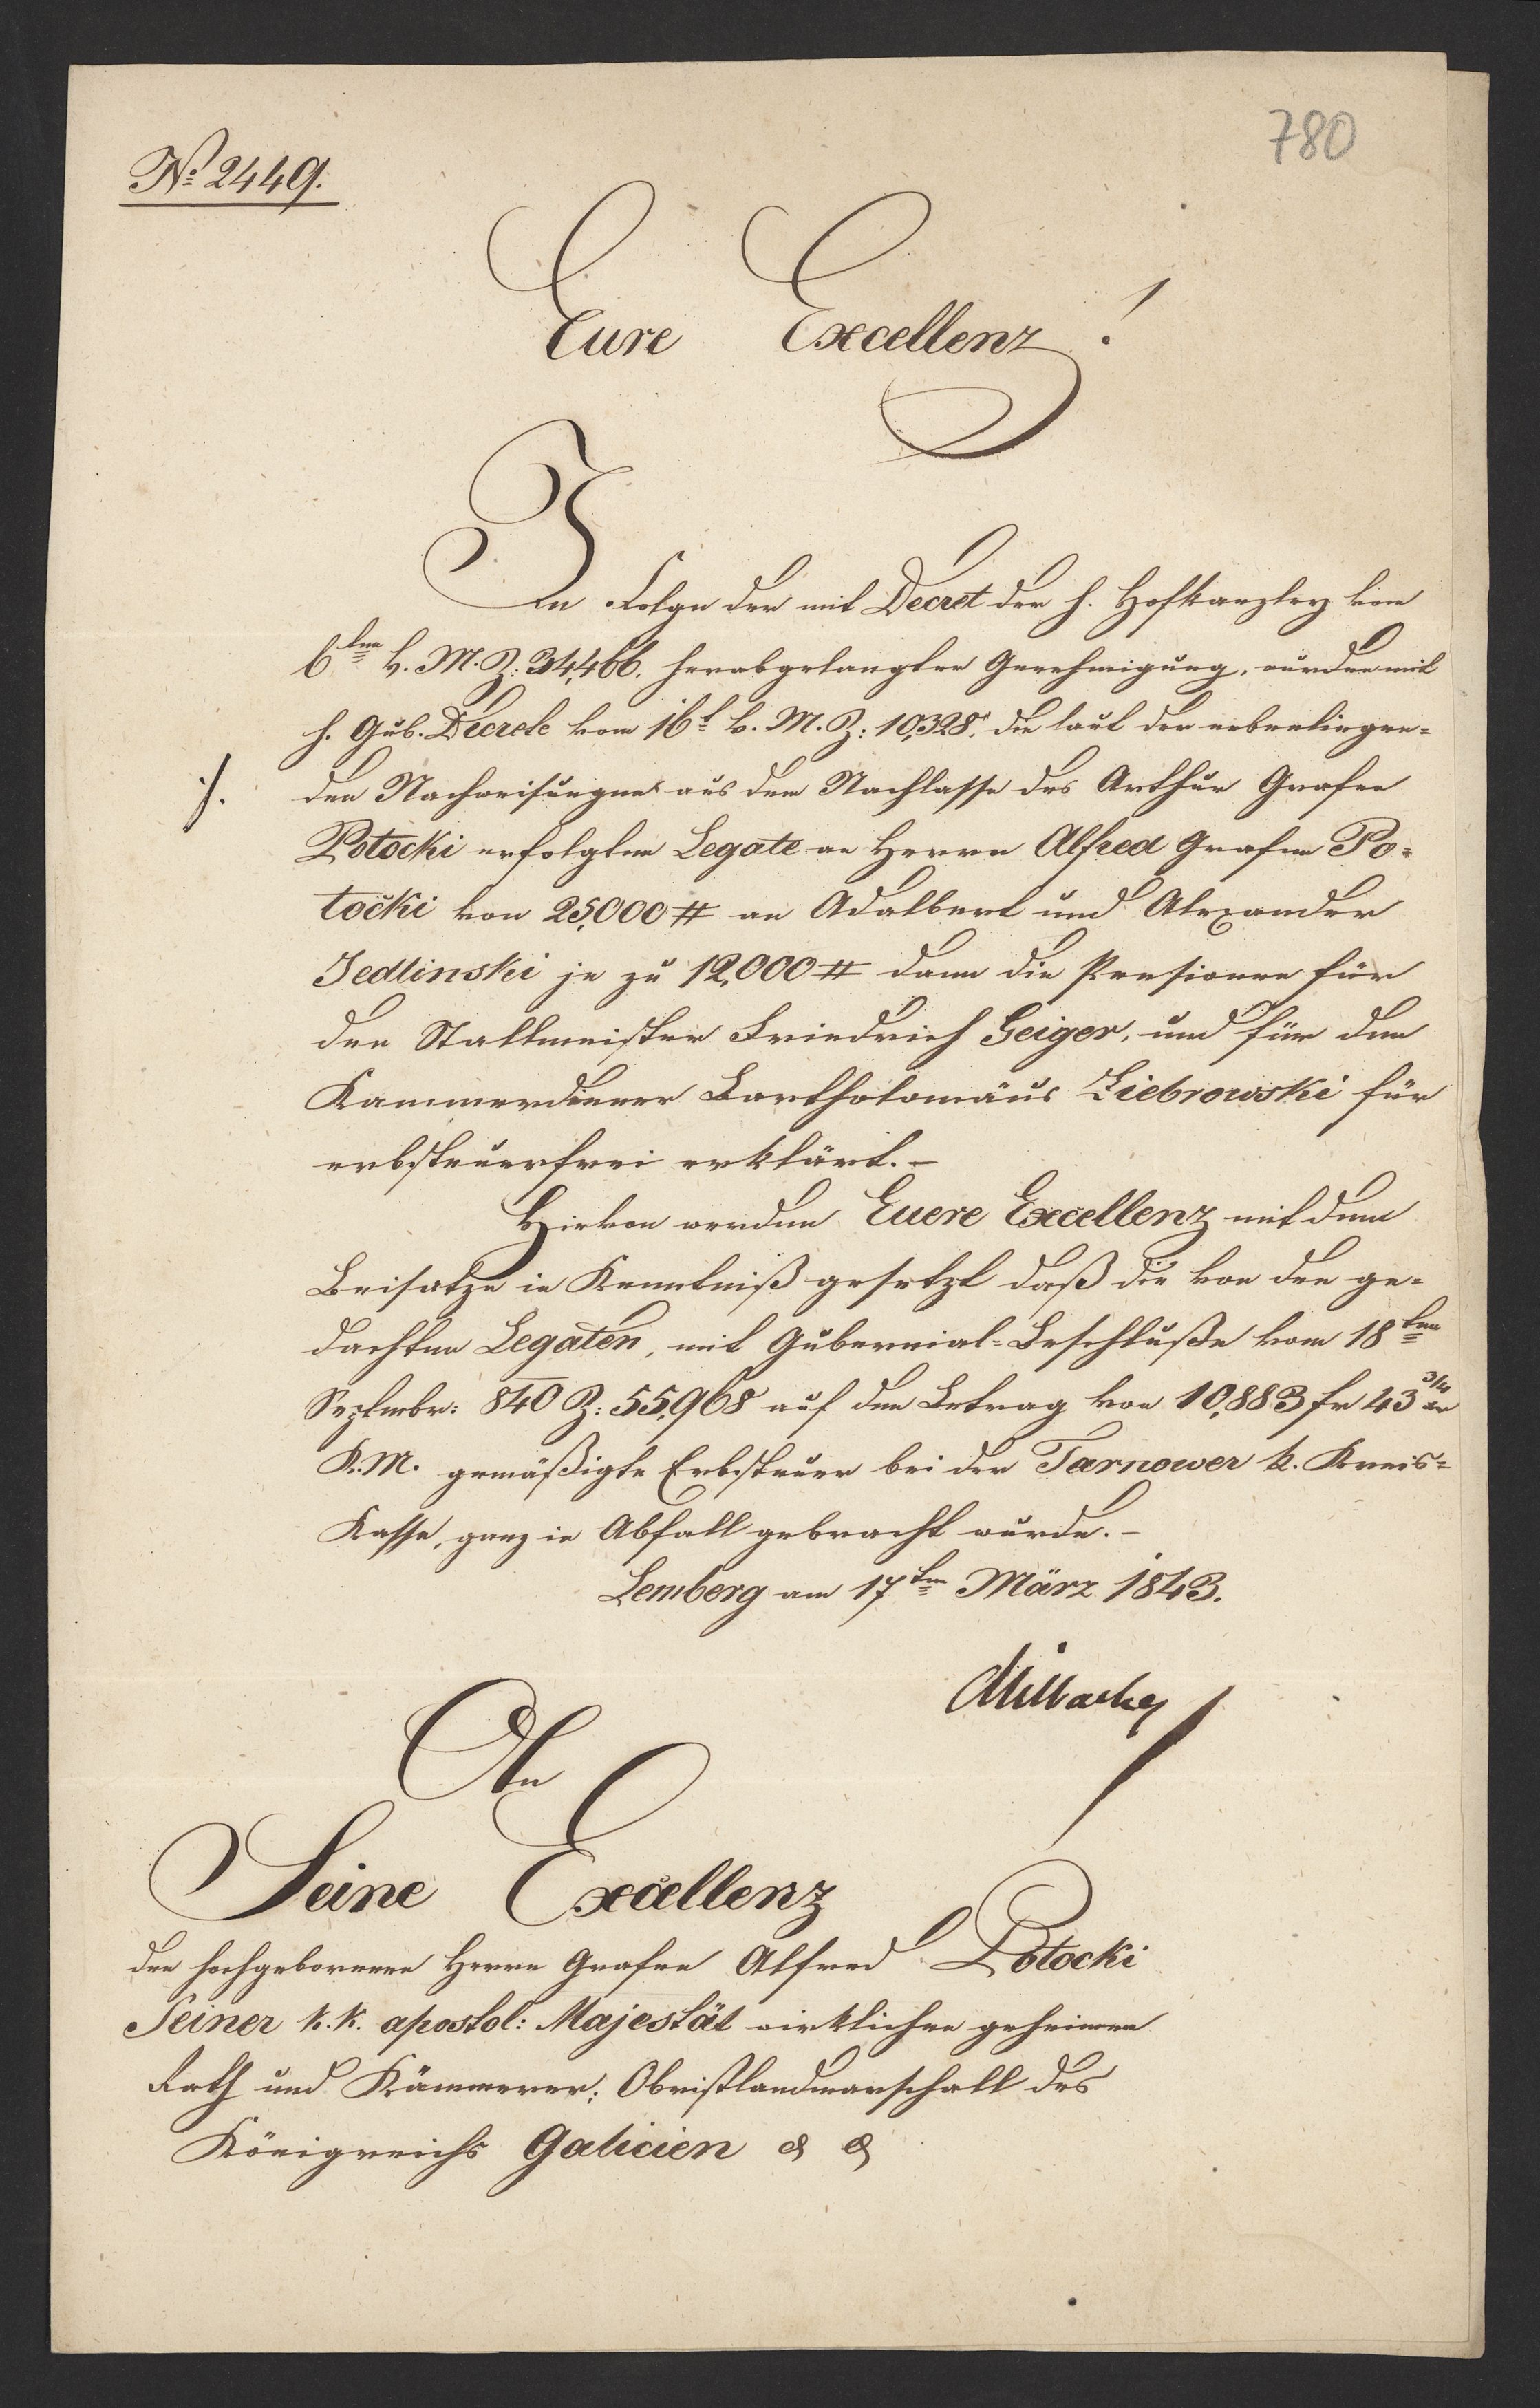 780
No 2449.
Eure Excellenz!
In Folge der mit Decret der h. Hofkanzley vom
6ten v. M. Z: 34,466. herabgelangten Genehmigung, wurden mit
h. Gub. Decrete vom 16t v. M. Z: 10,328. die laut der nebenliegen=
./. den Nachweisungen aus dem Nachlasse des Arthur Grafen
Potocki erfolgten Legate an Herrn Alfred Grafen Po=
tocki von 25,000 # an Adalbert und Alexander
Jedlinski je zu 12,000 # dann die Pensionen für
den Stallmeister Friedrich Geiger, und für den
Kammerdiener Bartholomäus Ziebrowski für
erbsteuerfrei erklärt.–
Hievon werden Euere Excellenz mit dem
Beisatze in Kenntniß gesetzt daß die von den ge=
dachten Legaten, mit Gubernial-Beschluße vom 18ten
Septembr: 840 Z: 55,968 auf den Betrag von 10,883 fr 43 3/4 xr
K.M. gemäßigte Erbsteuer bei der Tarnower k. Kreis=
Kasse, ganz in Abfall gebracht wurde.–
Lemberg am 17ten März 1843.
An
Seine Excellenz
den hochgebornenen Herrn Grafen Alfred Potocki
Seiner k. k. apostol: Majestät wirklichen geheimen
Rath und Kämmerer; Obristlandmarschall des
Königreichs Galicien & &